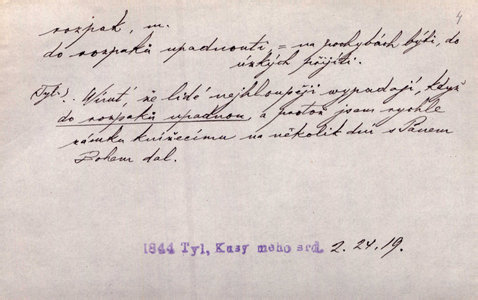 rozpak, m.
do rozpaků upadnouti, = na pochybách býti, do
úzkých přijíti.
Tyl.: Vímť, že lidé nejhloupěji vypadají, když
do rozpaků upadnou, a protož jsem rychle
zámku knížecímu na několik dní s Pánem
Bohem dal.
1844 Tyl, Kusy meho srd. 2. 24. 19.
4